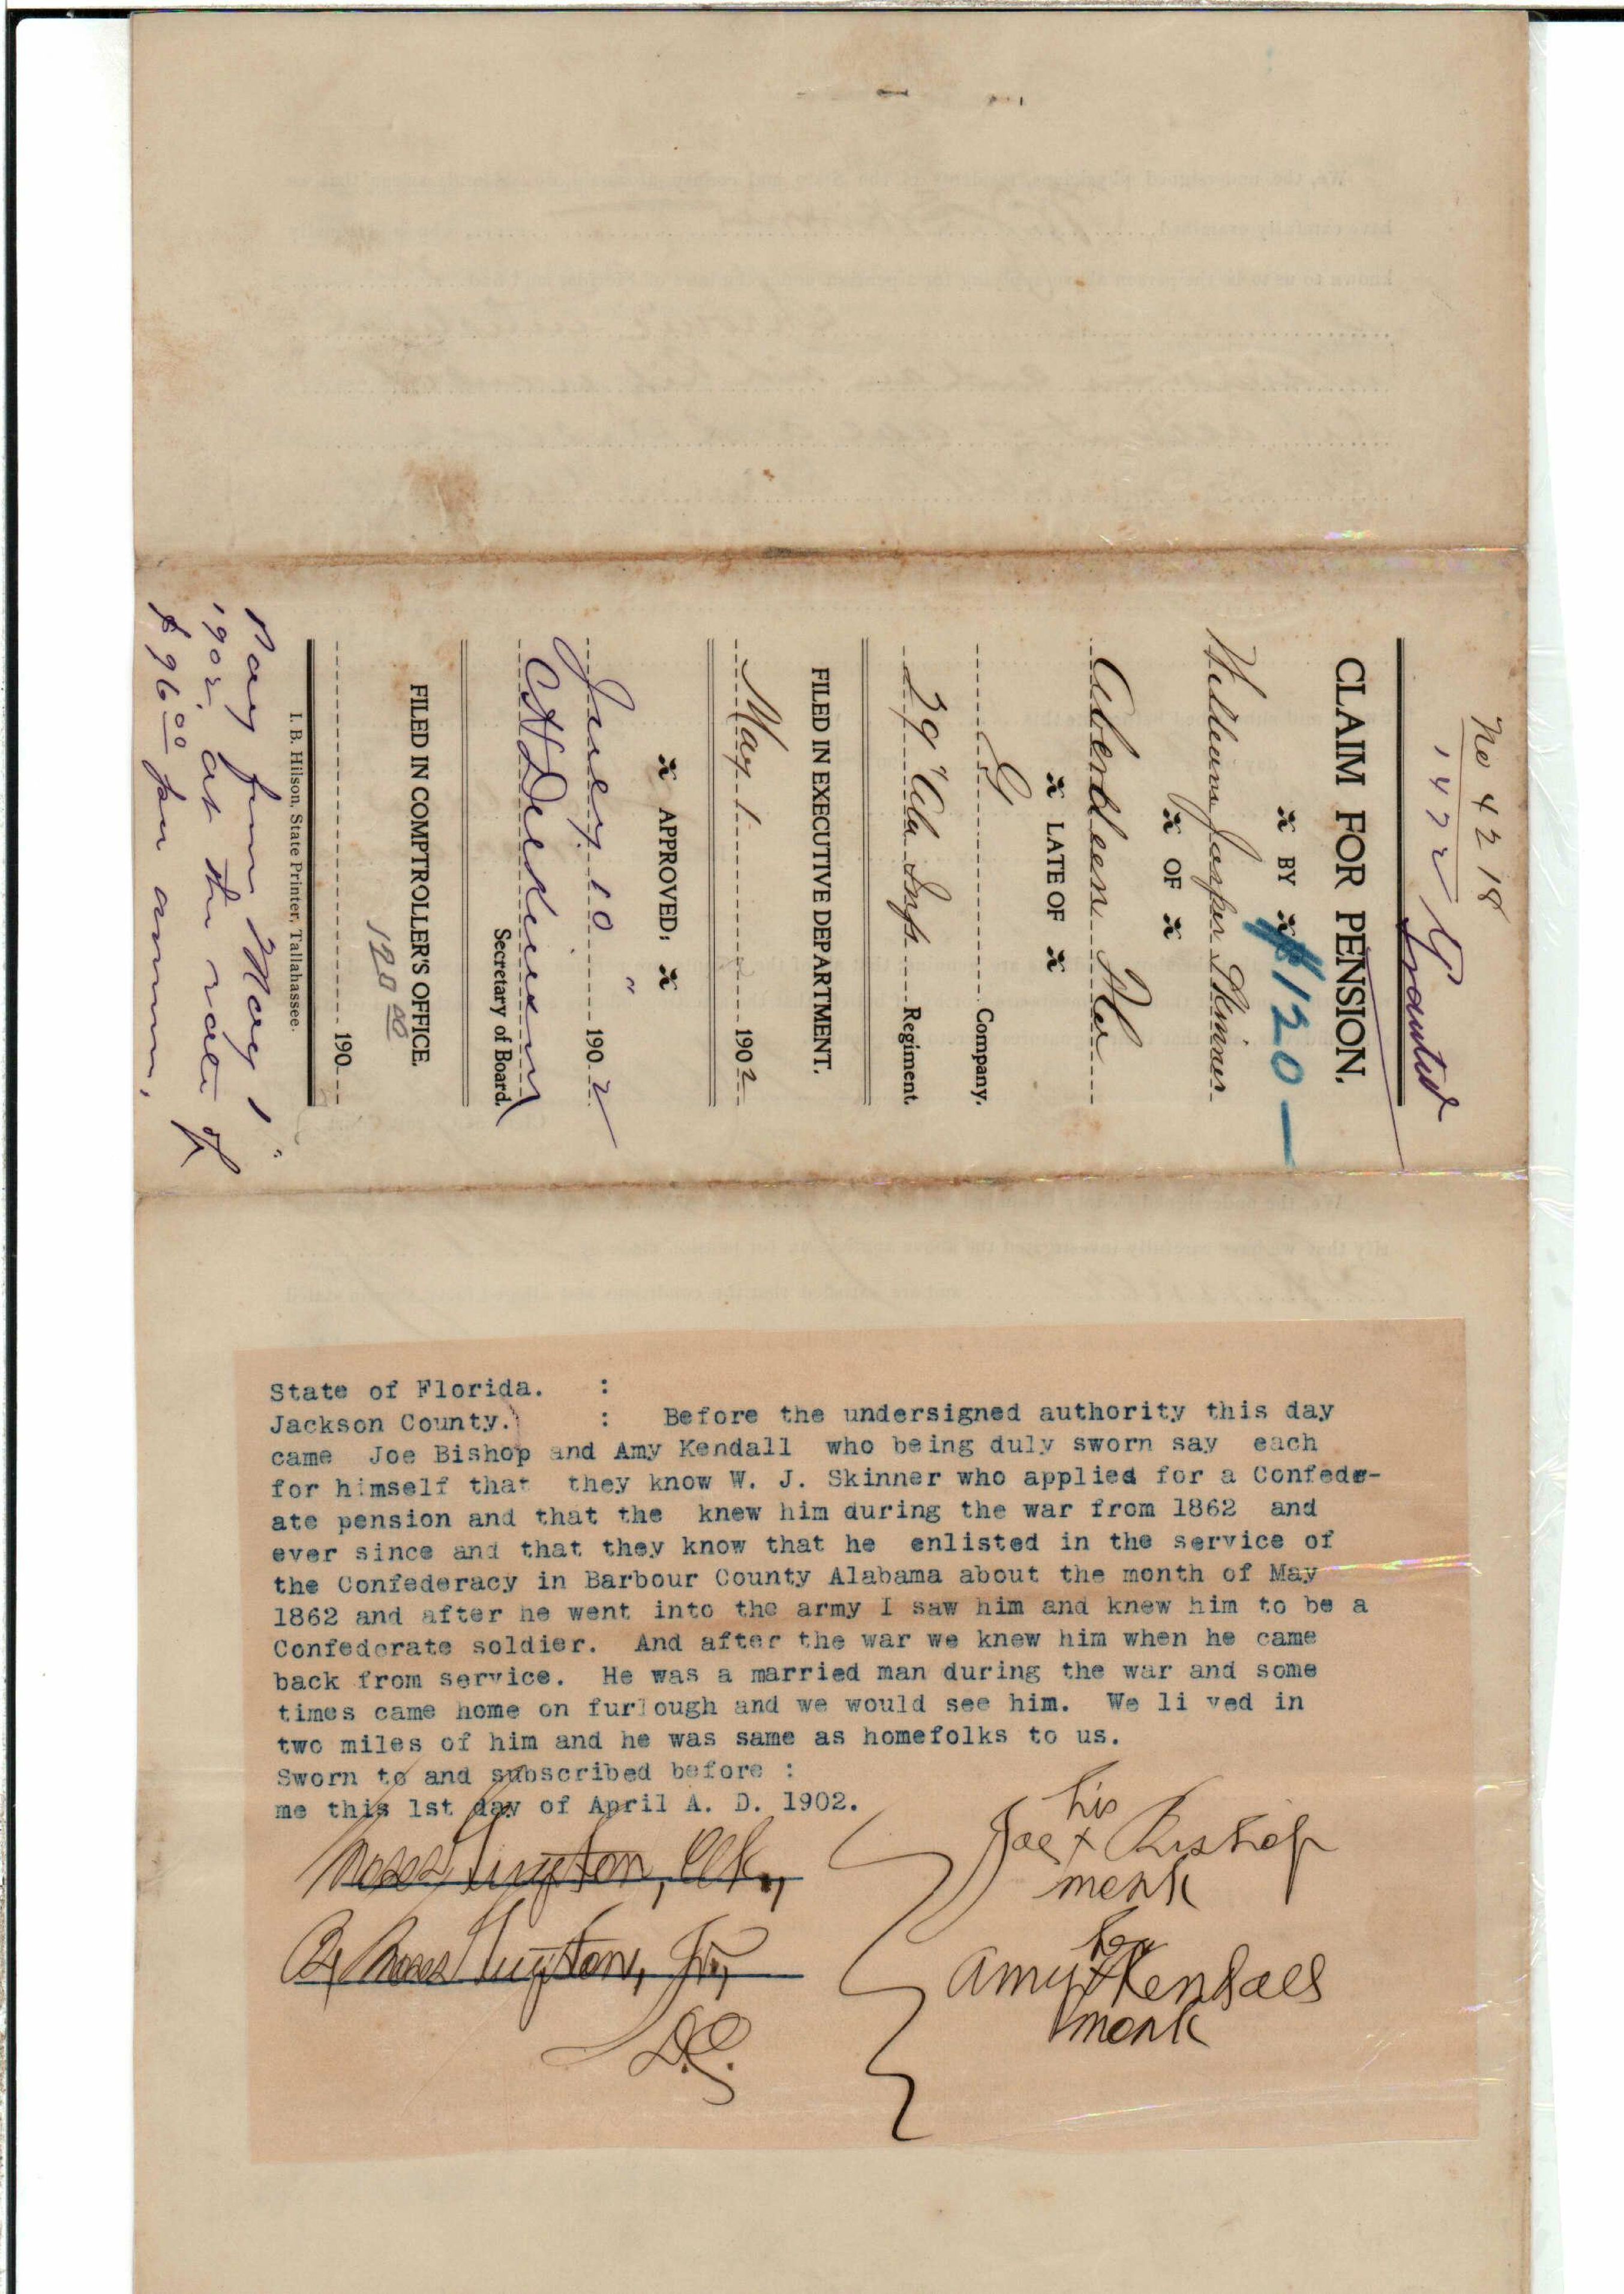 No 4218
1472
Granted
CLAIM FOR PENSION.
BY $120 —
William Jasper Skinner
OF
Aberdeen Fla
LATE OF
G Company.
39" Ala Inf. Regiment.
FILED IN EXECUTIVE DEPARTMENT.
May 1 1902
APPROVED:
July 10" 1902
Secretary of Board.
FILED IN COMPTROLLER'S OFFICE.
120 00
190
I. B. Hilson, State Printer, Tallahassee.
Pay from May 1"
1902, at the rate of
$96 00 per annum.
State of Florida. :
Jackson County. : Before the undersigned authority this day
came Joe Bishop and Amy Kendall who being duly sworn say each
for himself that they know W. J. Skinner who applied for a Confede-
ate pension and that the knew him during the war from 1862 and
ever since and that they know that he enlisted in the service of
the Confederacy in Barbour County Alabama about the month of May
1862 and after he went into the army I saw him and knew him to be a
Confederate soldier. And after the war we knew him when he came
back from service. He was a married man during the war and some
times came home on furlough and we would see him. We li ved in
two miles of him and he was same as homefolks to us.
Sworn to and subscribed before :
me this 1st day of April A. D. 1902.
his
Joe x Bishop
mark
Moses Guyton, Clk.,
By Moses Guyton, Jr.,
D.C.
her
Amy x Kendall
mark